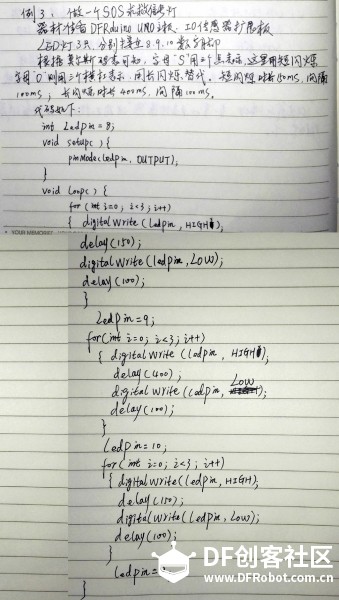 例3：做一个SOS求救信号灯
器材准备 DFRduino UNO主板、IO传感器扩展板
LED灯3只，分别接在8.9.10数字端口
根据摩尔斯码表可知，字母"S"用三个点表示，这里用短闪烁
字母"O"则用三个横杠表示，用长闪烁替代。短闪烁时长150ms，间隔
100ms；长闪烁时长400ms，间隔100ms。
代码如下：
int Ledpin=8;
void setup() {
pinMode(ledpin, OUTPUT);
}
void loop() {
for (int i=0; i<3; i++)
{ digitalWrite(ledpin, HIGH);
YOUR MEMORIES
delay(150);
digitalWrite(ledpin, LOW);
delay(100);
}
Ledpin=9;
for(int i=0; i<3; i++)
{ digitalWrite(ledpin, HIGH);
delay(400);
digitalWrite(ledpin, LOW
delay(100);
}
Ledpin=10;
for(int i=0; i<3; i++)
{ digitalWrite(ledpin, HIGH);
delay(150);
digitalWrite(ledpin, LOW);
delay(100);
}
ledpin=
}
DF创客社区
www.DFRobot.com.cn